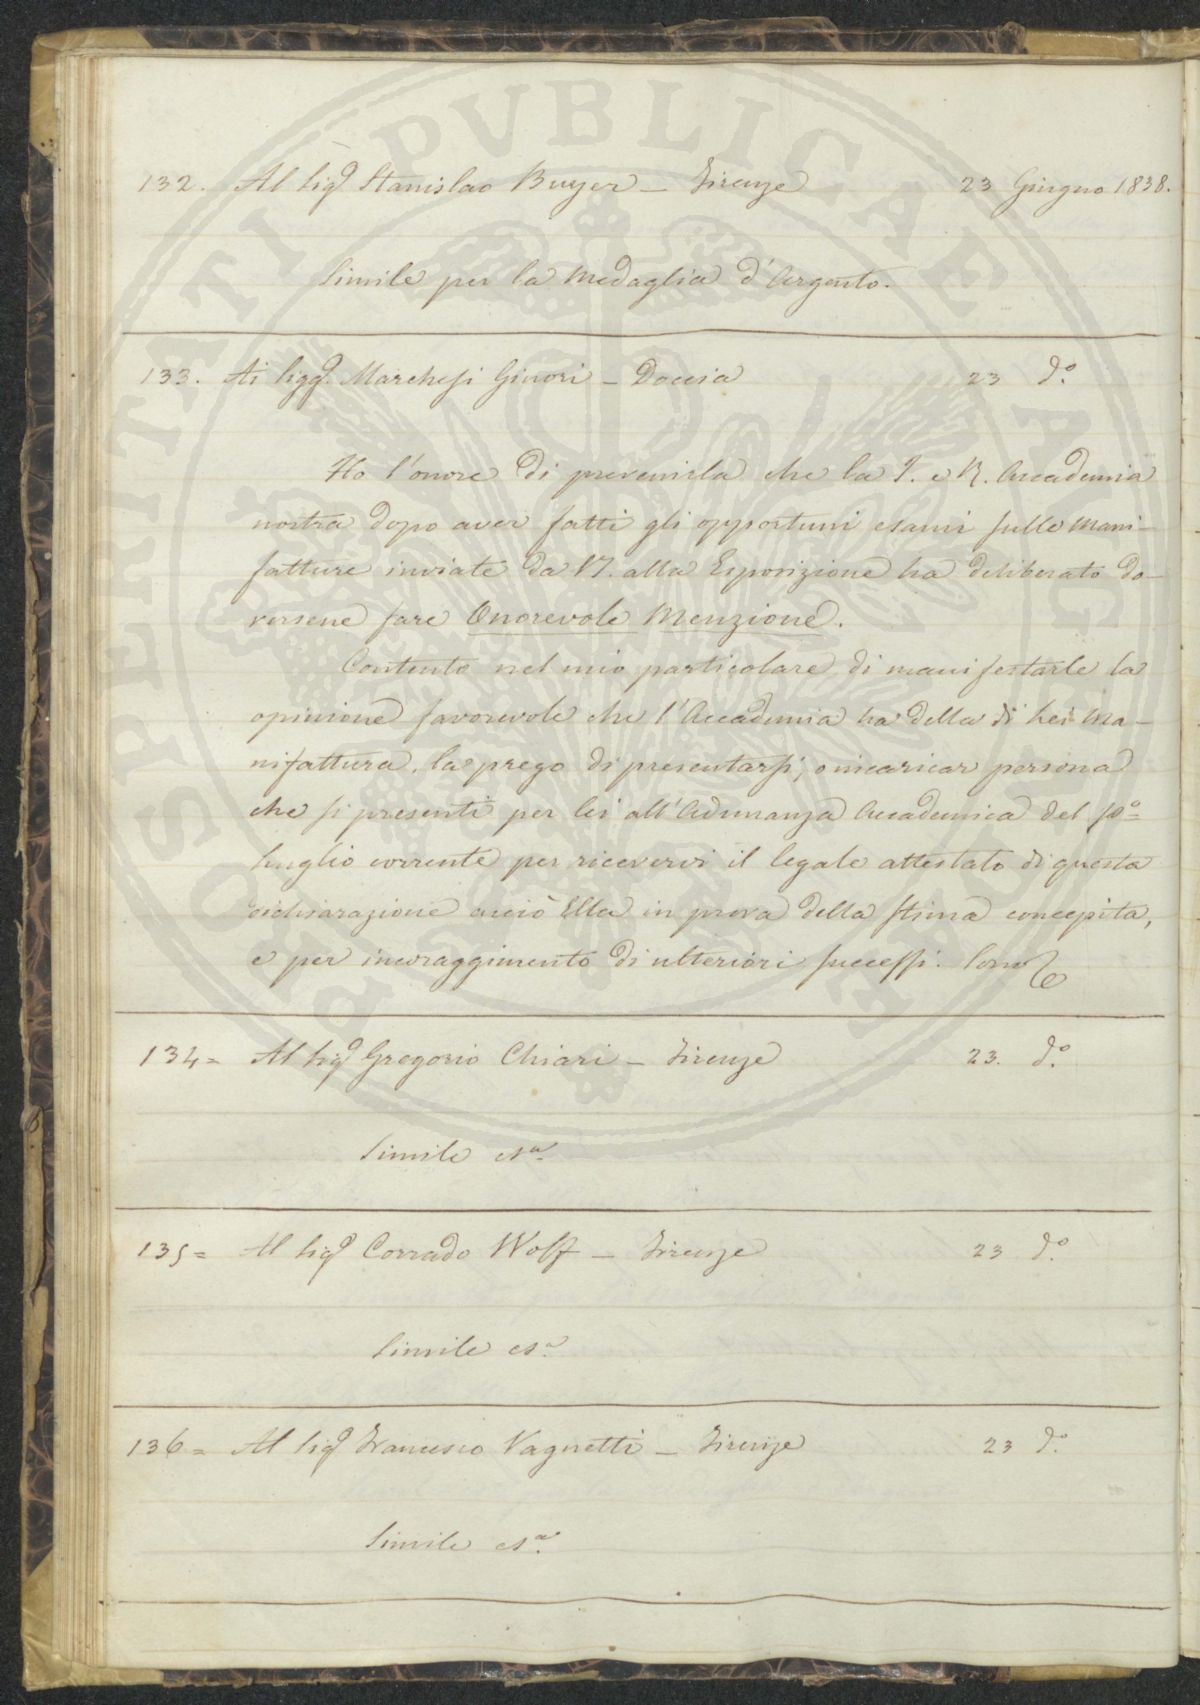 132. Al Sigr Stanislao Buyer – Firenze 23 Giugno 1838.
Simile per la Medaglia d'Argento.
133. Ai Sigg.r Marchesi Ginori – Doccia 23 do.
Ho l'onore di prevenirla che la I. e R. Accademia
nostra dopo aver fatti gli opportuni esami sulle Mani-
fatture inviate da VS. alla Esposizione ha deliberato do-
versene fare Onorevole Menzione.
Contento nel mio particolare di manifestarle la
opinione favorevole che l'Accademia ha della di Lei Ma-
nifattura, la prego di presentarsi, o incaricar persona
che si presenti per lei all'Adunanza Accademica del po=
Luglio corrente per ricevervi il legale attestato di questa
dichiarazione acciò Ella in prova della stima concepita,
e per incoraggimento di ulteriori successi. Sono
134= Al Sigr Gregorio Chiari – Firenze 23. do.
Simile
135= Al Sigr Corrado Wolf – Firenze 23 do.
Simile
136= Al Sigr Francesco Vagnetti – Firenze 23 do.
Simile
PROSPERITATI PVBLICAE AVGENDAE